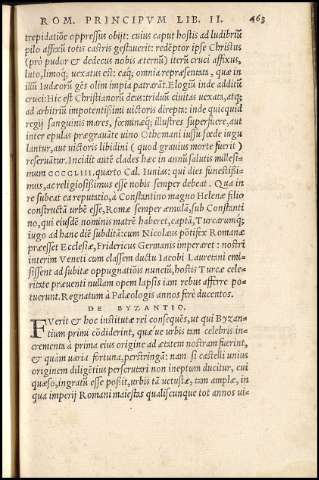 ROM. PRINCIPVM LIB. II. 463
trepidatiōe oppressus obijt: cuius caput hostis ad ludibriū
pilo affixū totis castris gestauerit: redēptor ipse Christus
(pro pudor & dedecus nobis æternū) iterū cruci affixus,
luto, limoq; uexatus est: eaq; omnia repræsentata, quæ in
illū Iudæorū gēs olim impia patrârat. Elogiū inde additū
cruci: Hic est Christianorū deus: triduū ciuitas uexata, atq;
ad arbitriū impotentissimi uictoris direpta: inde quicquid
regij sanguinis mares, fœminæq; illustres superfuere, aut
inter epulas prægrauate uino Othomani iussu fœde iugu
lantur, aut uictoris libidini ( quod grauius morte fuerit )
reseruātur. Incidit autē clades hæc in annū salutis millesi-
mum CCCCLIII, quarto Cal. Iunias: qui dies funestissi-
mus, ac religiosissimus esse nobis semper debeat. Qua in
re subeat ea reputatio, à Constantino magno Helenæ filio
constructā urbē esse, Romæ semper æmulā, sub Constanti
no, qui eiusdē nominis matrē haberet, captā, Turcarumq;
iugo ad hanc diē subditā: cum Nicolaus pōtifex Romanæ
præesset Ecclesiæ, Fridericus Germanis imperaret: nostri
interim Veneti cum classem ductu Iacobi Lauretani emi-
sissent ad subitæ oppugnatiōis nunciū, hostis Turcæ cele-
ritate præuenti nullam opem lapsis iam rebus afferre po-
tuerunt. Regnatum à Palæologis annos ferè ducentos.
DE BYZANTIO.
FVerit & hoc institutæ rei consequēs, ut qui Byzan-
tium primū cōdiderint, quæ'ue urbis tam celebris in-
crementa à prima eius origine ad ætatem nostram fuerint,
& quàm uaria fortuna, perstringā: nam si castelli unius
originem diligētius perscrutari non ineptum ducitur, cui
quæso, ingratū esse possiit, urbis tā uetustæ, tam amplæ, in
qua imperij Romani maiestas qualiscunque tot annos ui-